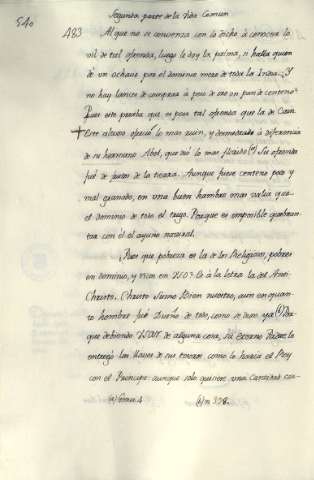 540
Segunda parte de la Vida Comun
483 Al que no se convenza con lo dicho à conocer lo
vil de tal ofrenda, luego le doy la palma, si halla quien
dé un ochavo por el dominio mero de toda la India. Y
no hay lance de comparar à peso de oro un pan de centeno?
Pues esto prueba que es peor tal ofrenda que la de Cain
+ Este alevoso ofreció lo mas ruin, y desmedrado à diferencia
de su hermano Abel, que dió lo mas florido (a) Su ofrenda
fué de frutos de la tierra. Aunque fuese centeno poco y
mal granado, en una buena hambre mas valia que
el dominio de todo el trigo. Porque es imposible quebran-
tar con él el ayuno natural.
Pues que pobreza es la de los Religiosos, pobres
en dominio, y ricos en uso? Es à la letra la del Anti-
Christo. Christo Señor Bien nuestro, aun en quan-
to hombre fué Dueño de todo, como se dixo ya (b) Por-
que debiendo usar de alguna cosa, su Eterno Padre le
entregó las llaves de sus tesoros como lo haria el Rey
con el Principe: aunque solo quisiese una cantidad cor-
(a) Genes. 4 (b) n 378.